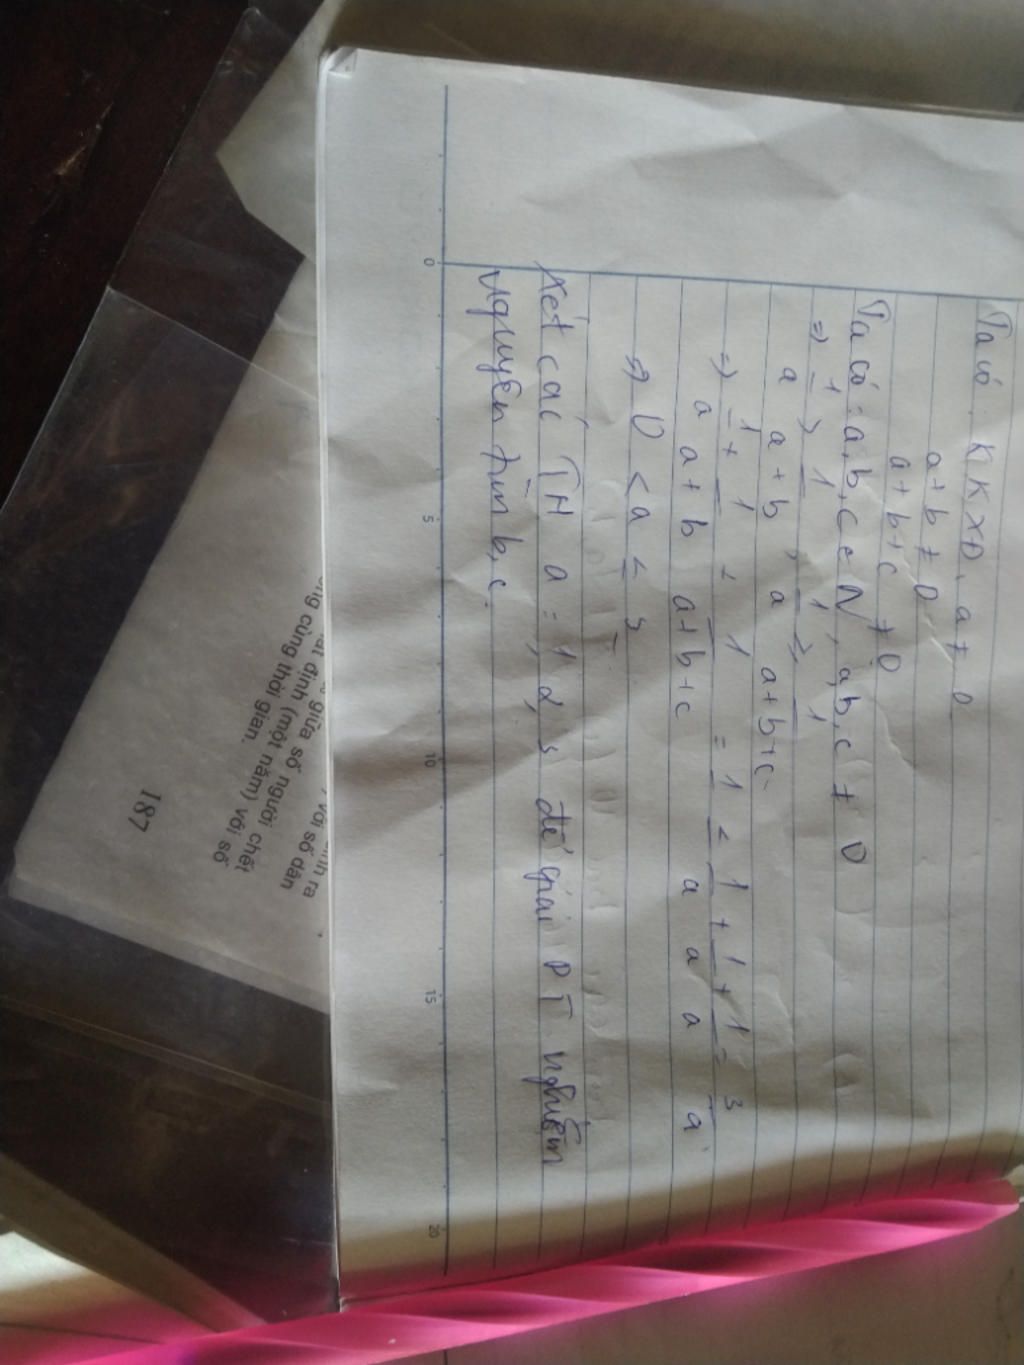 Ta có ĐKXĐ: a ≠ 0
a+b ≠ 0
a+b+c ≠ 0
Ta có: a,b,c ∈ N, a,b,c ≠ 0
=) 1/a > 1/(a+b), 1/a ≥ 1/(a+b+c)
=) 1/a + 1/(a+b) + 1/(a+b+c) = 1 < 1/a + 1/a + 1/a = 3/a
=) 0 < a ≤ 3
Xét các TH a = 1, 2, 3 để giải PT nghiệm
nguyên tìm b,c.
0 5 10 15 20
giữa số người chết
định (một năm) với số
cùng thời gian.
với số dân
187